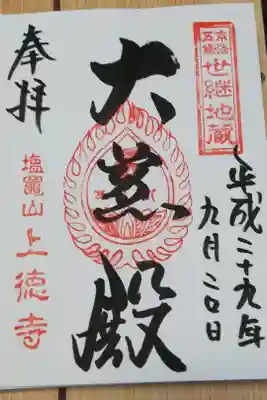 世継地蔵
平成二十九年
九月二〇日
大慈殿
奉拝
塩竈山上徳寺